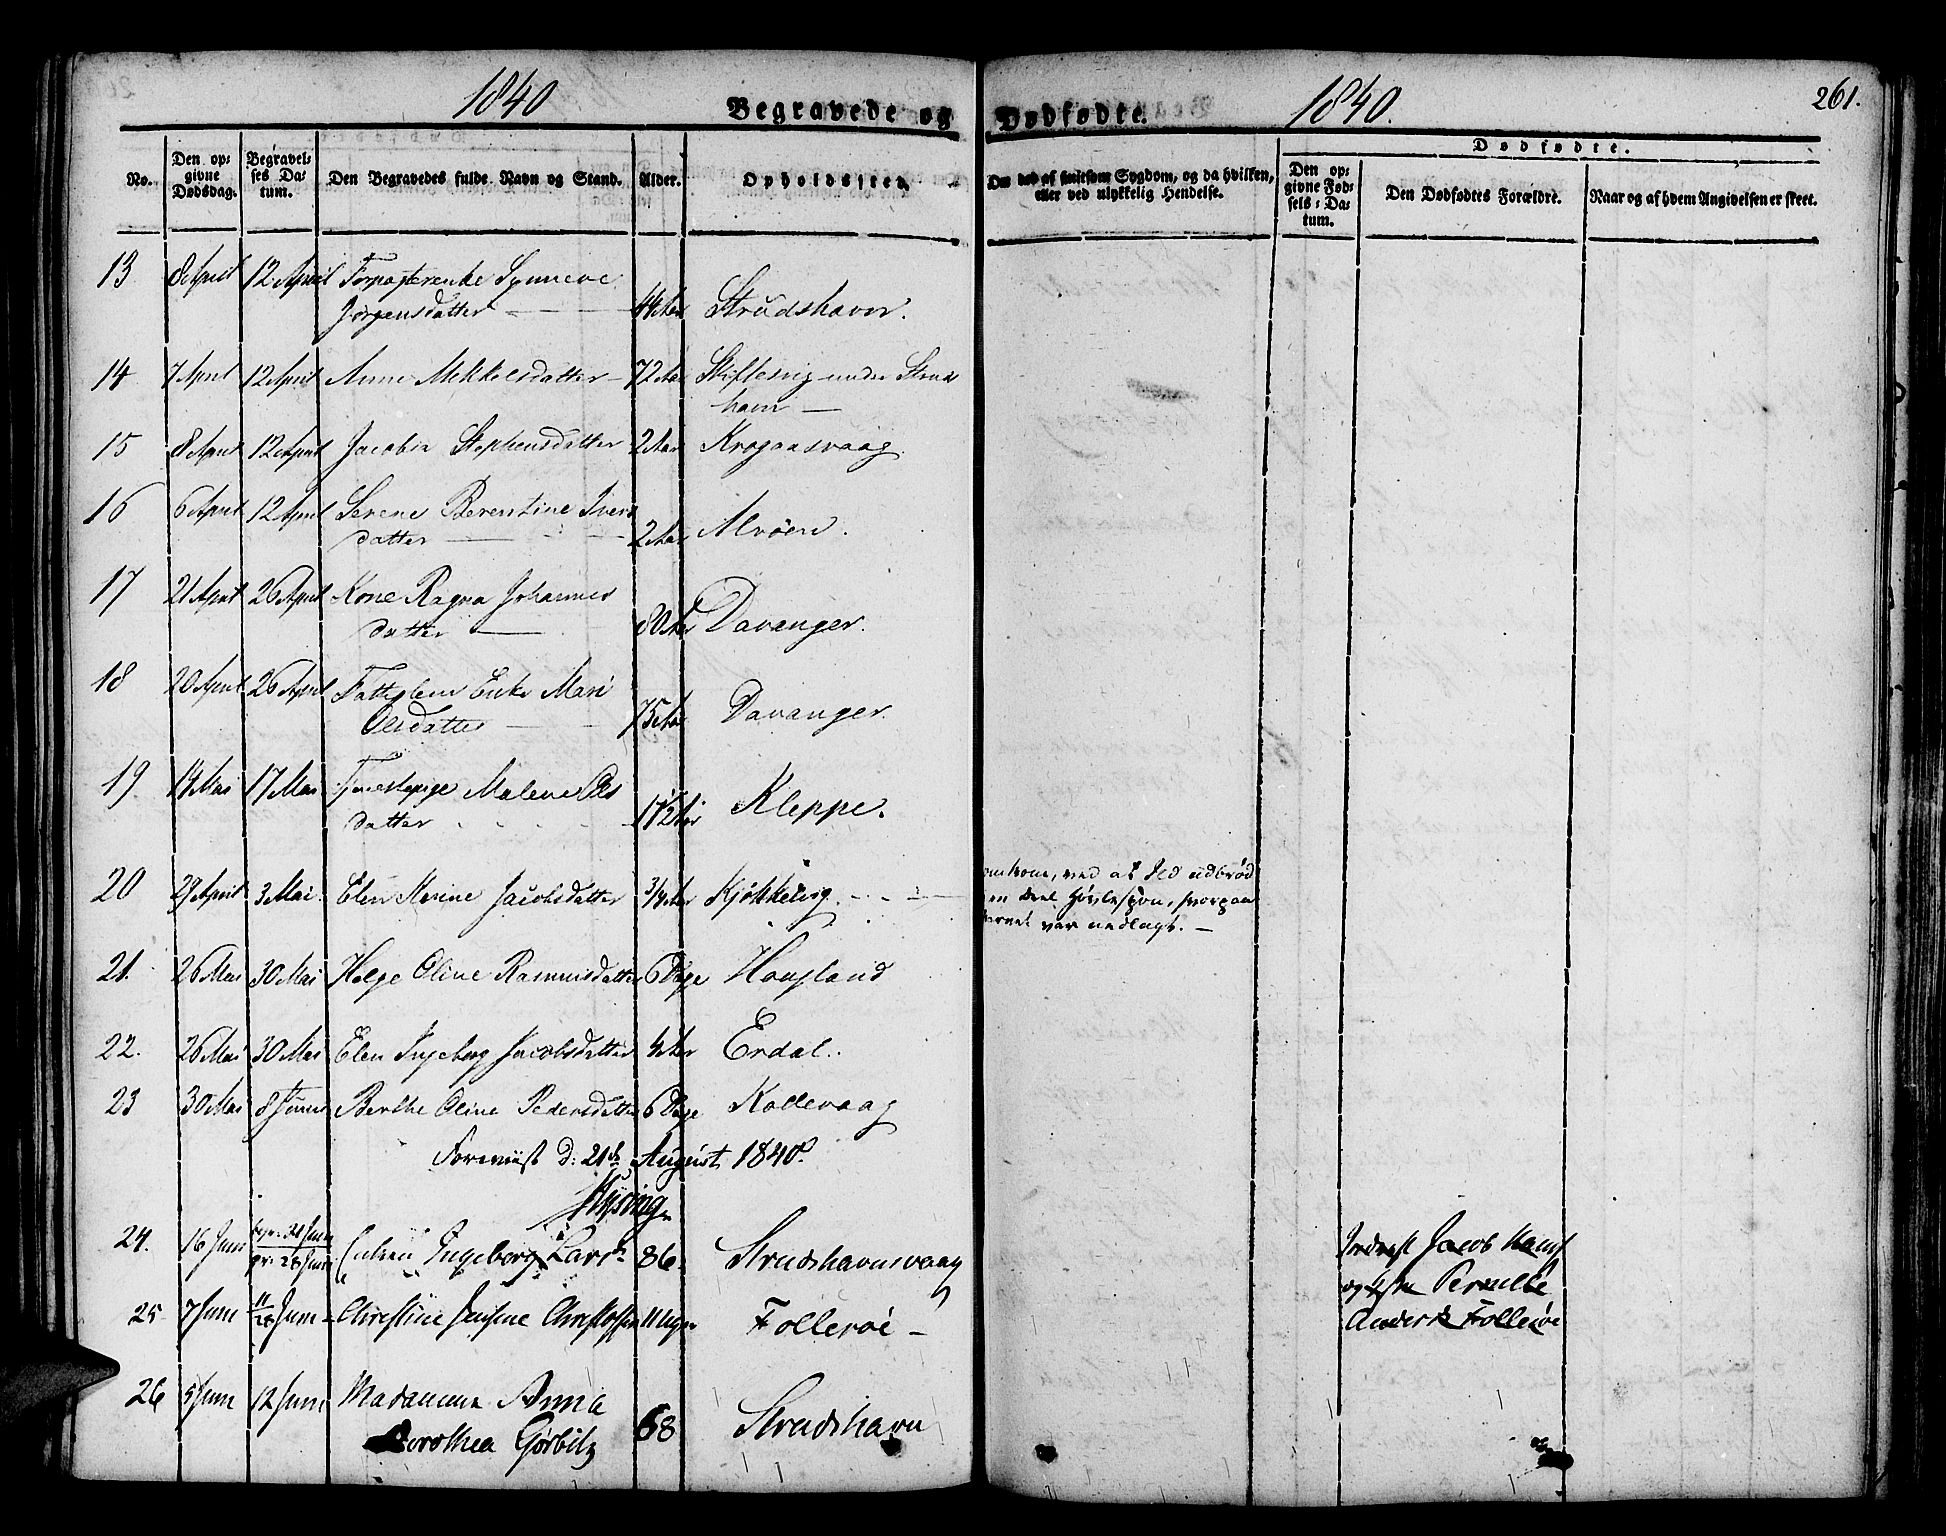 1840 Begravede og Dødfødte. 1840. 261.
No. Den opgivne Dødsdag. Begravelses Datum. Den Begravedes fulde Navn og Stand. Alder. Opholdssted. Om død af smitsom Sygdom, og da hvilken, eller ved ulykkelig Hendelse. Dødfødte. Den opgivne Fødsels-Datum. Den Dødfødtes Forældre. Naar og af hvem Angivelsen er skeet.
13 8 April 12 April Forpagterenke Synneve
Jørgensdatter 44 Aar Strudshavn.
14 7 April 12 April Anne Mekkelsdatter 72 Aar Skiftesvig under Struds
havn
15 8 April 12 April Jacobia Stephensdatter 2 Aar Krogaasvaag
16 6 April 12 April Serene Berentine Ivers
datter 2 Aar Alvøen.
17 21 April 26 April Kone Ragna Johannes
datter 80 Aar Davanger.
18 20 April 26 April Fattiglem Enke Mari
Olsdatter 75 Aar Davanger.
19 14 Mai 17 Mai Tjenestepige Malene Ols
datter 17 1/2 Aar Kleppe.
20 29 April 3 Mai Elen Marine Jacobsdatter 3/4 Aar Kjøkkelvig. omkom, ved at Ild udbrød
i en Deel Høvlespøn, hvorpaa
Barnet var nedlagt.
21. 26 Mai 30 Mai Helge Oline Rasmusdatter 6 Dage Haugland
22. 26 Mai 30 Mai Elen Ingeborg Jacobsdatter 4 Aar Erdal.
23 30 Mai 8 Juni Berthe Oline Pedersdatter 6 Dage Kollevaag
Foreviist d: 21de August 1840.
24. 16 Juni Ingeborg Larsd. 86. Strudshavnsvaag
25. 7 Juni 11/28 Juni Christine Christoffer 11 Uger Follerøe
26 5 Juni 12 Juni Madamme Anna
Dorothea Görbitz 68 Strudshavn
Jacob Hans
og Pernille
Anders Follerøe